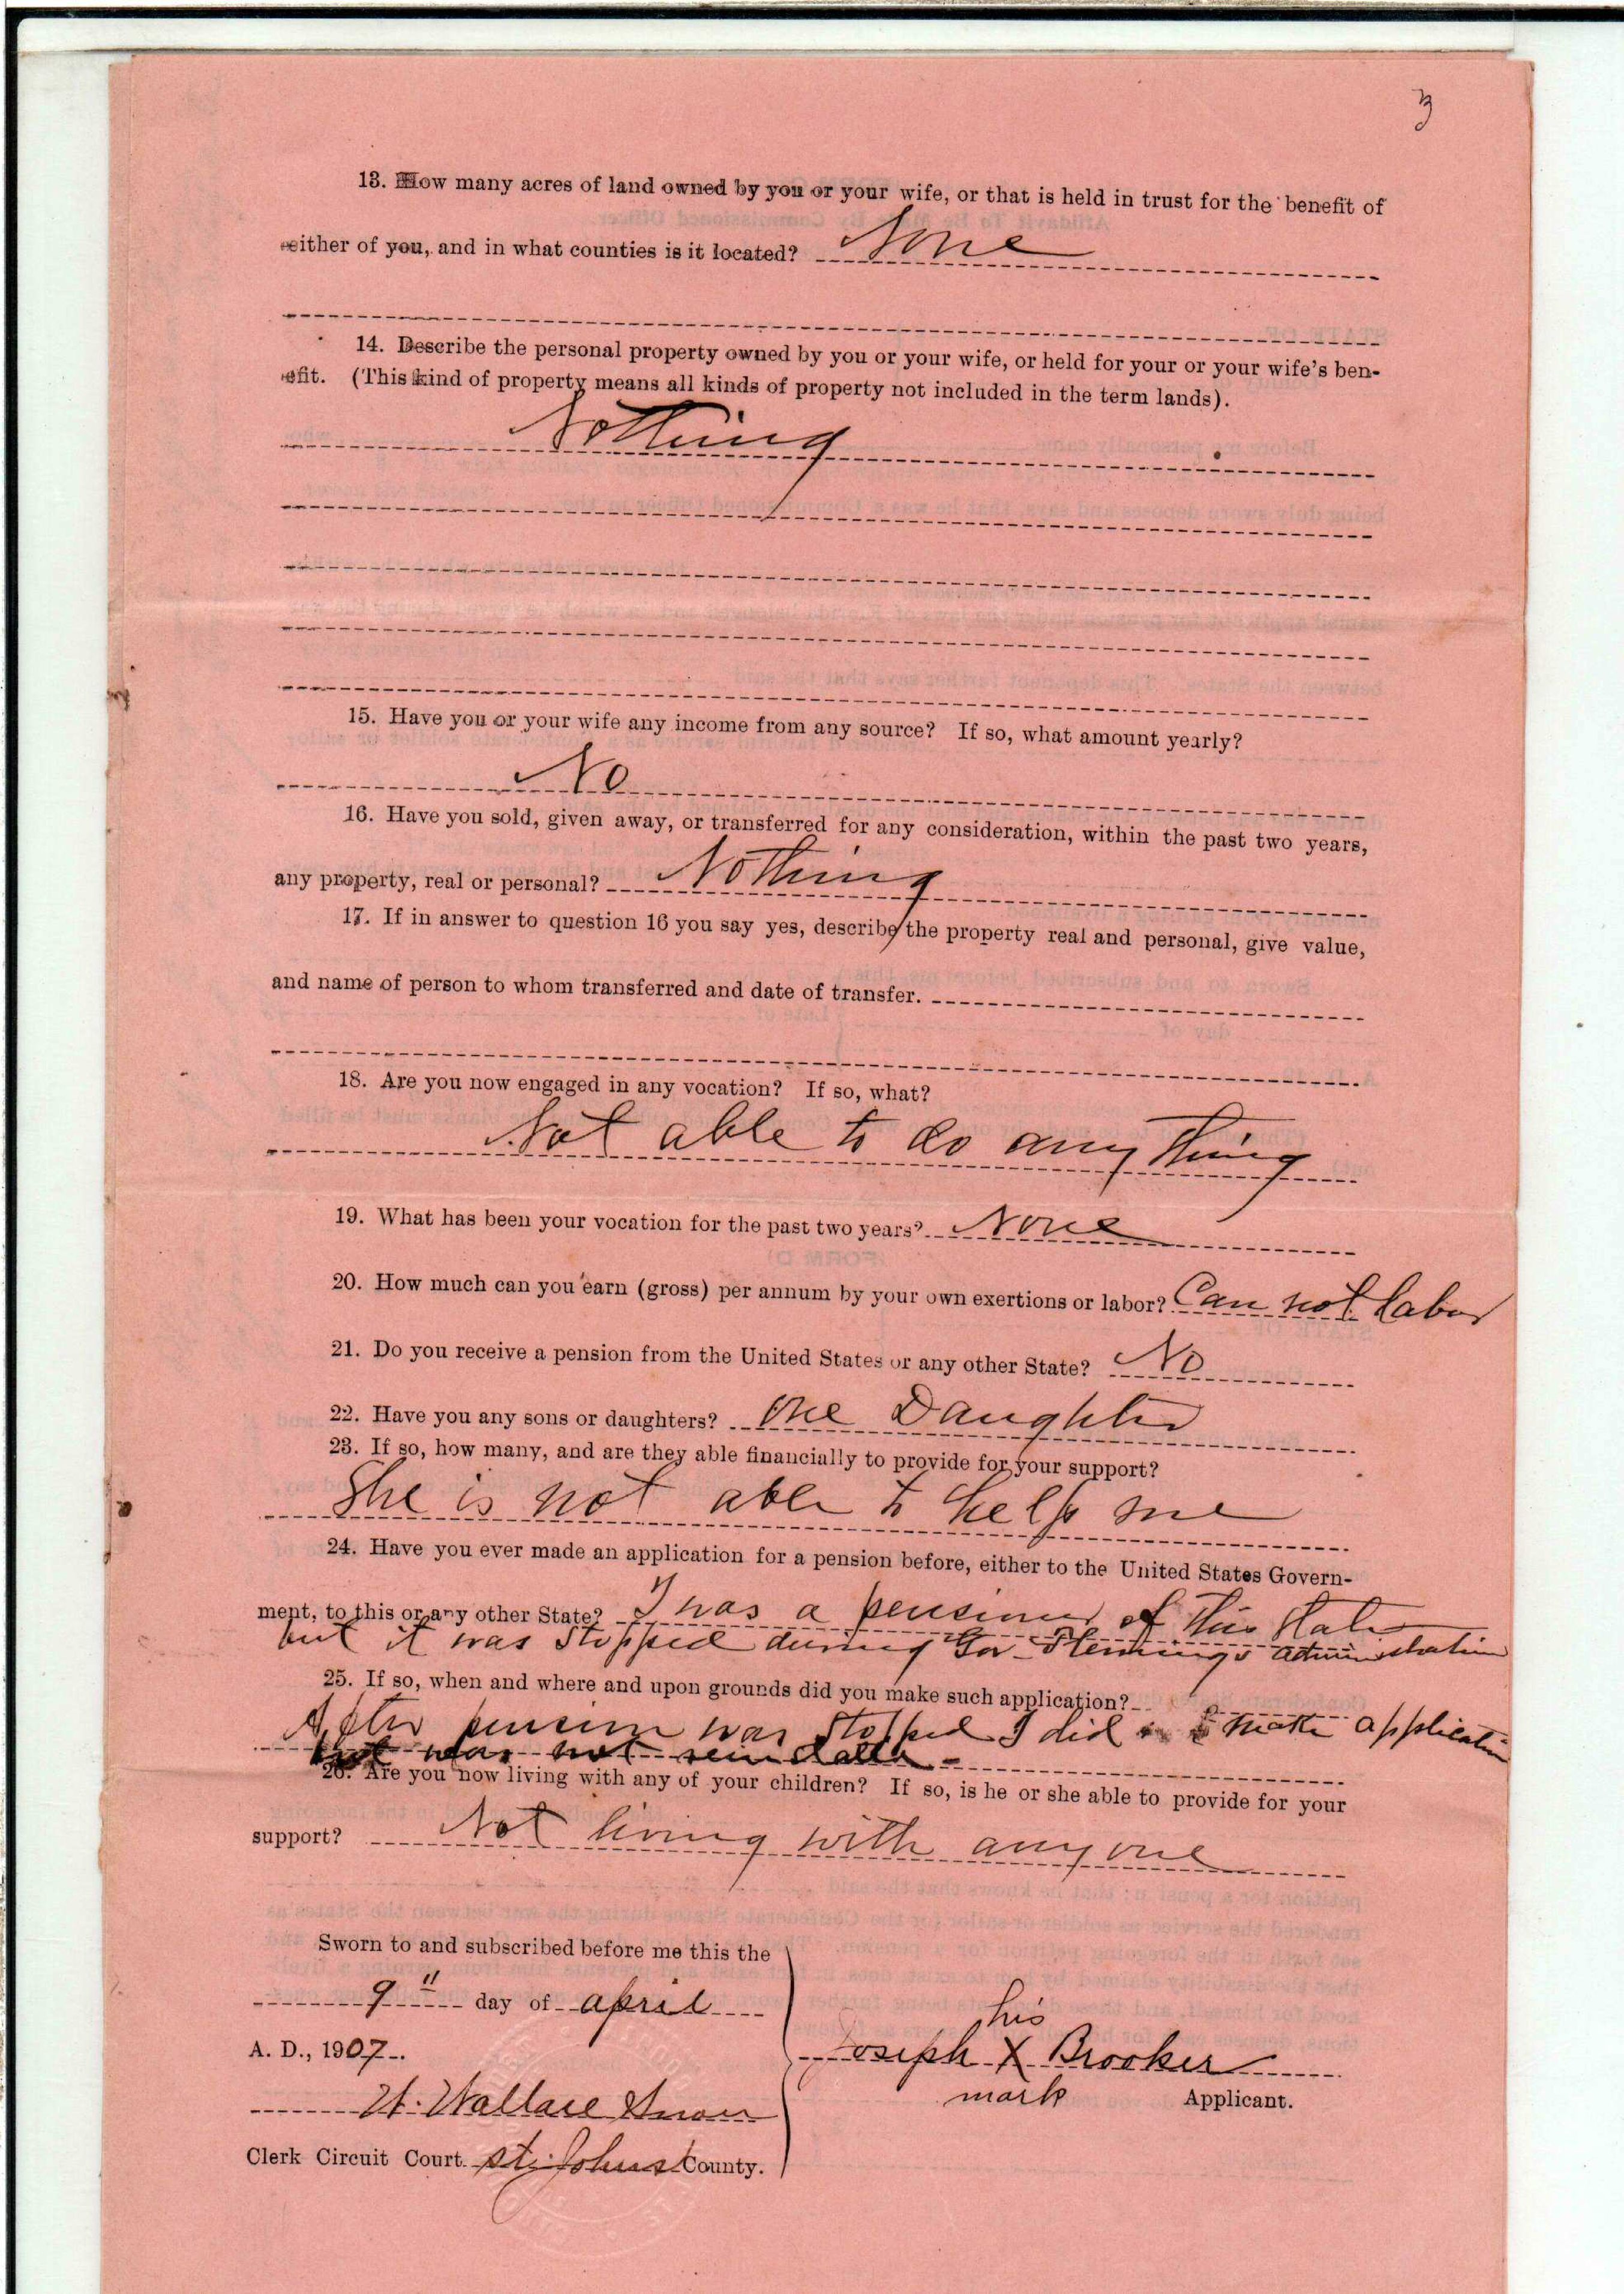 3
13. How many acres of land owned by you or your wife, or that is held in trust for the benefit of
either of you, and in what counties is it located? None
14. Describe the personal property owned by you or your wife, or held for your or your wife's ben-
efit. (This kind of property means all kinds of property not included in the term lands).
Nothing
15. Have you or your wife any income from any source? If so, what amount yearly?
No
16. Have you sold, given away, or transferred for any consideration, within the past two years,
any property, real or personal? Nothing
17. If in answer to question 16 you say yes, describe the property real and personal, give value,
and name of person to whom transferred and date of transfer.
18. Are you now engaged in any vocation? If so, what?
Not able to do any thing
19. What has been your vocation for the past two years? None
20. How much can you earn (gross) per annum by your own exertions or labor? Can not labor
21. Do you receive a pension from the United States or any other State? No
22. Have you any sons or daughters? One Daughter
23. If so, how many, and are they able financially to provide for your support?
She is not able to help me
24. Have you ever made an application for a pension before, either to the United States Govern-
ment, to this or any other State? I was a pensioner of this State
but it was stopped during Gov. Flemings administration
25. If so, when and where and upon grounds did you make such application?
After pension was stopped I did make application
but was not
26. Are you now living with any of your children? If so, is he or she able to provide for your
support? Not living with any one
Sworn to and subscribed before me this the
9" day of april
A. D., 1907.
his
Joseph X Brooker
mark Applicant.
Wallace
Clerk Circuit Court. St. Johns County.